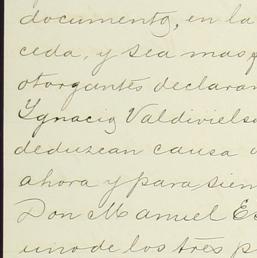 documento, en la
ceda, y sea mas
otorgantes declaran
Ygnacio Valdivielso
deduzcan causa
ahora y para siem
Don Manuel Es
uno de los tres p